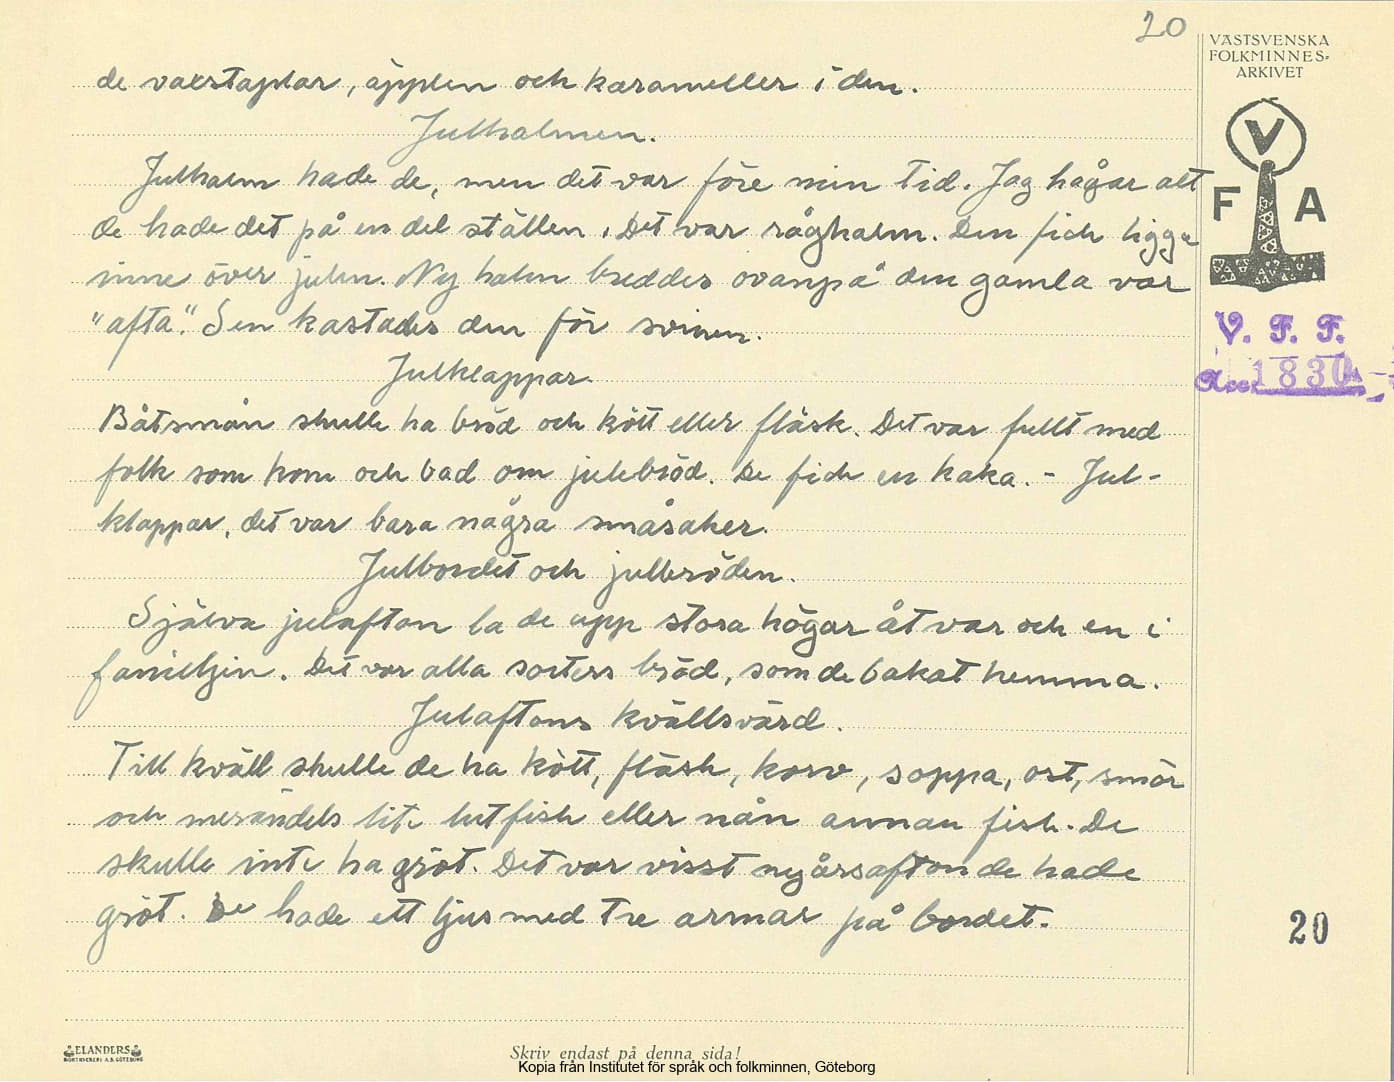 20
VÄSTSVENSKA
FOLKMINNES-
ARKIVET
V
F A
V. F. F.
Acc. 1830
de vaxstaplar, äpplen och karameller i den.
Julhalmen.
Julhalm hade de, men det var före min tid. Jag hågar att
de hade det på en del ställen. Det var råghalm. Den fick ligga
inne över julen. Ny halm breddes ovanpå den gamla var
"afta". Sen kastades den för svinen.
Julklappar.
Båtsmän skulle ha bröd och kött eller fläsk. Det var fullt med
folk som kom och bad om julebröd. De fick en kaka. - Jul-
klappar, det var bara några småsaker.
Julbordet och julbröden.
Själva julafton la de upp stora högar åt var och en i
familjen. Det var alla sorters bröd, som de bakat hemma.
Julaftons kvällsvard.
Till kväll skulle de ha kött, fläsk, korv, soppa, ost, smör
och merändels lite lutfisk eller nån annan fisk. De
skulle inte ha gröt. Det var visst nyårsafton de hade
gröt. De hade ett ljus med tre armar på bordet.
20
ELANDERS
BOKTRYCKERI A.B. GÖTEBORG
Skriv endast på denna sida!
Kopia från Institutet för språk och folkminnen, Göteborg